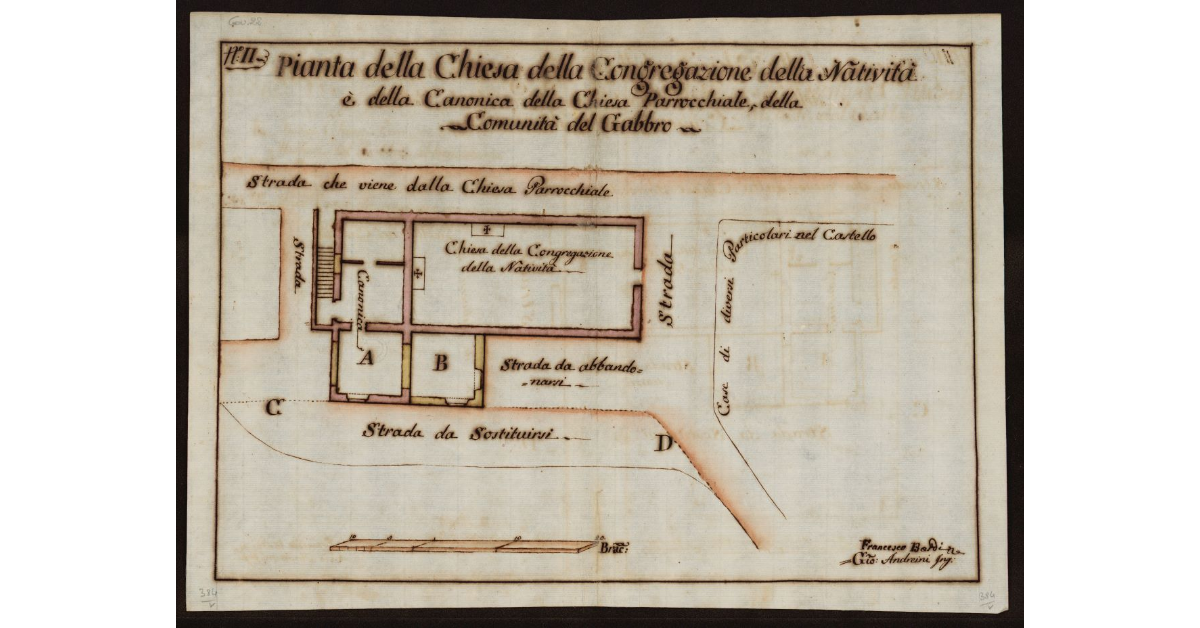 N.º II
Pianta della Chiesa della Congregazione della Natività
è della Canonica della Chiesa Parrocchiale, della
Comunità del Gabbro
Strada che viene dalla Chiesa Parrocchiale
Strada
Canonica
Chiesa della Congregazione
della Natività
Strada
Case di diversi Particolari nel Castello
A
B
Strada da abbando=
=narsi
C
Strada da Sostituirsi
D
Brac:
Francesco Bardi
Gio: Andreini Ing:
384
384